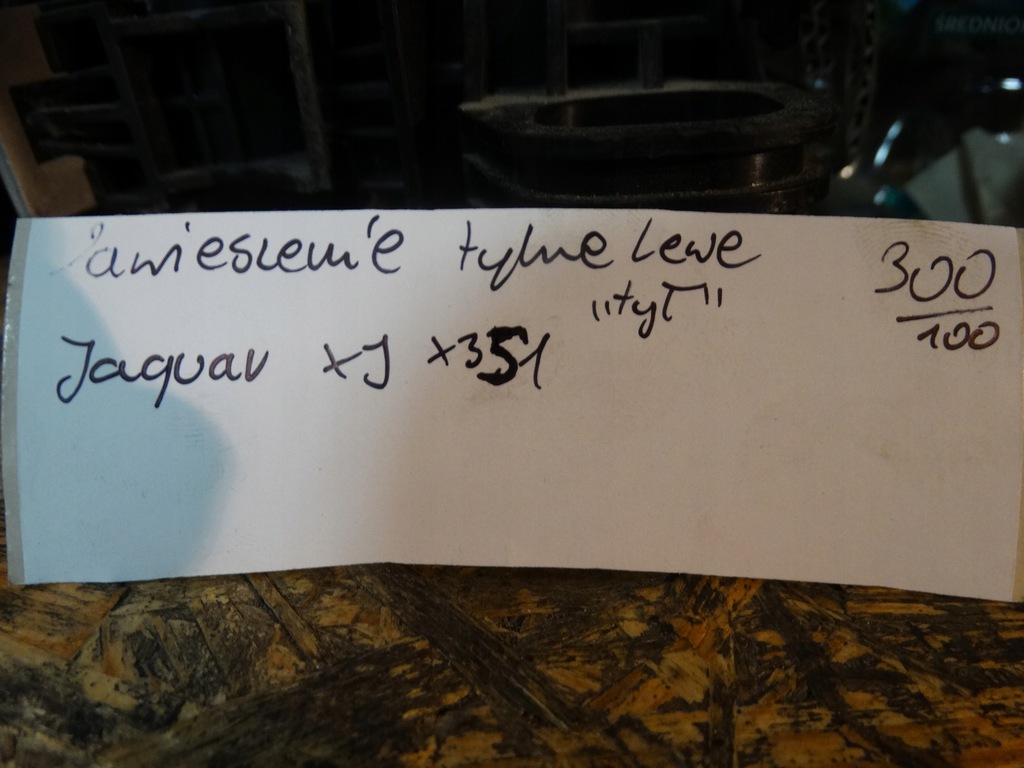 Zawieszenie tylne Lewe 300
"tył" 100
Jaguar XJ x351
ŚREDNIO